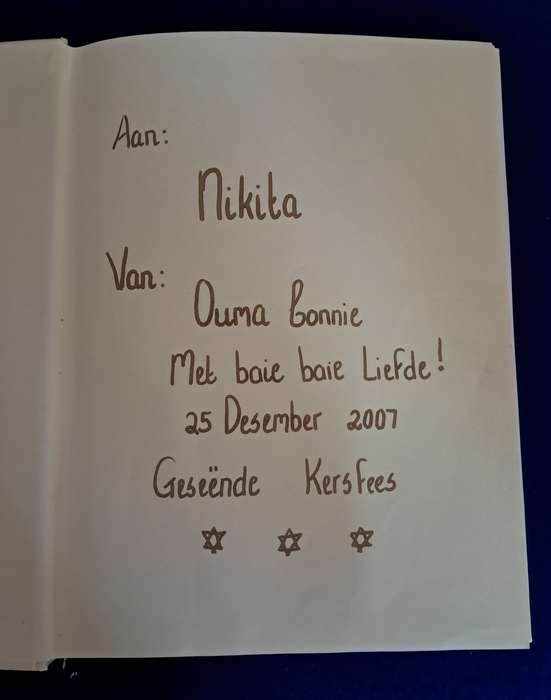 Aan:
Nikita
Van:
Ouma Bonnie
Met baie baie Liefde!
25 Desember 2007
Geseënde Kersfees